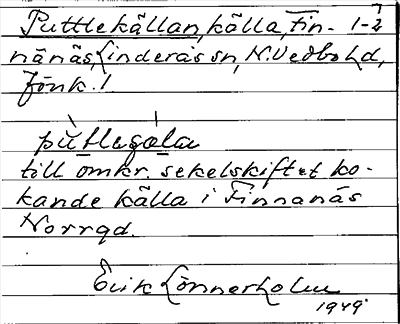 Puttlekällan, källa, Fin- 1-2
nanäs, Linderås sn, N. Vedbo hd,
Jönk. l
putlegæla
till omkr. sekelskiftet ko-
kande källa i Finnanäs
Norrgd.
Erik Lönnerholm
1949